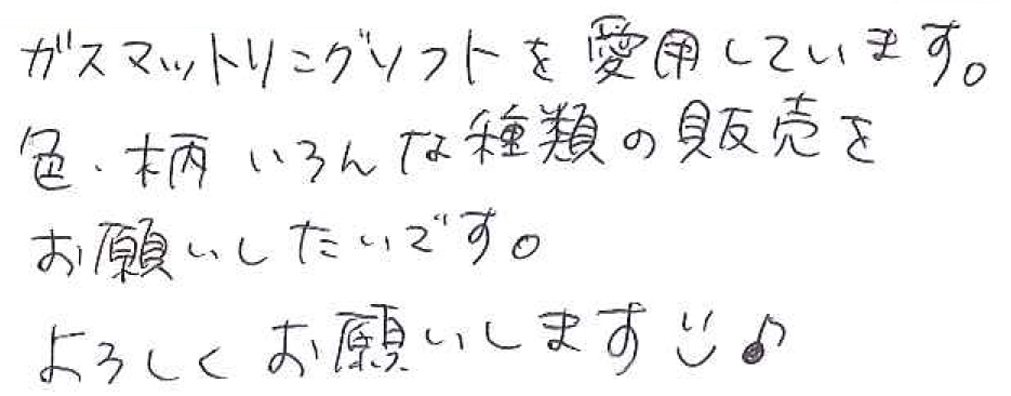 ガスマットリングソフトを愛用しています。
色・柄いろんな種類の販売を
お願いしたいです。
よろしくお願いします☺♪